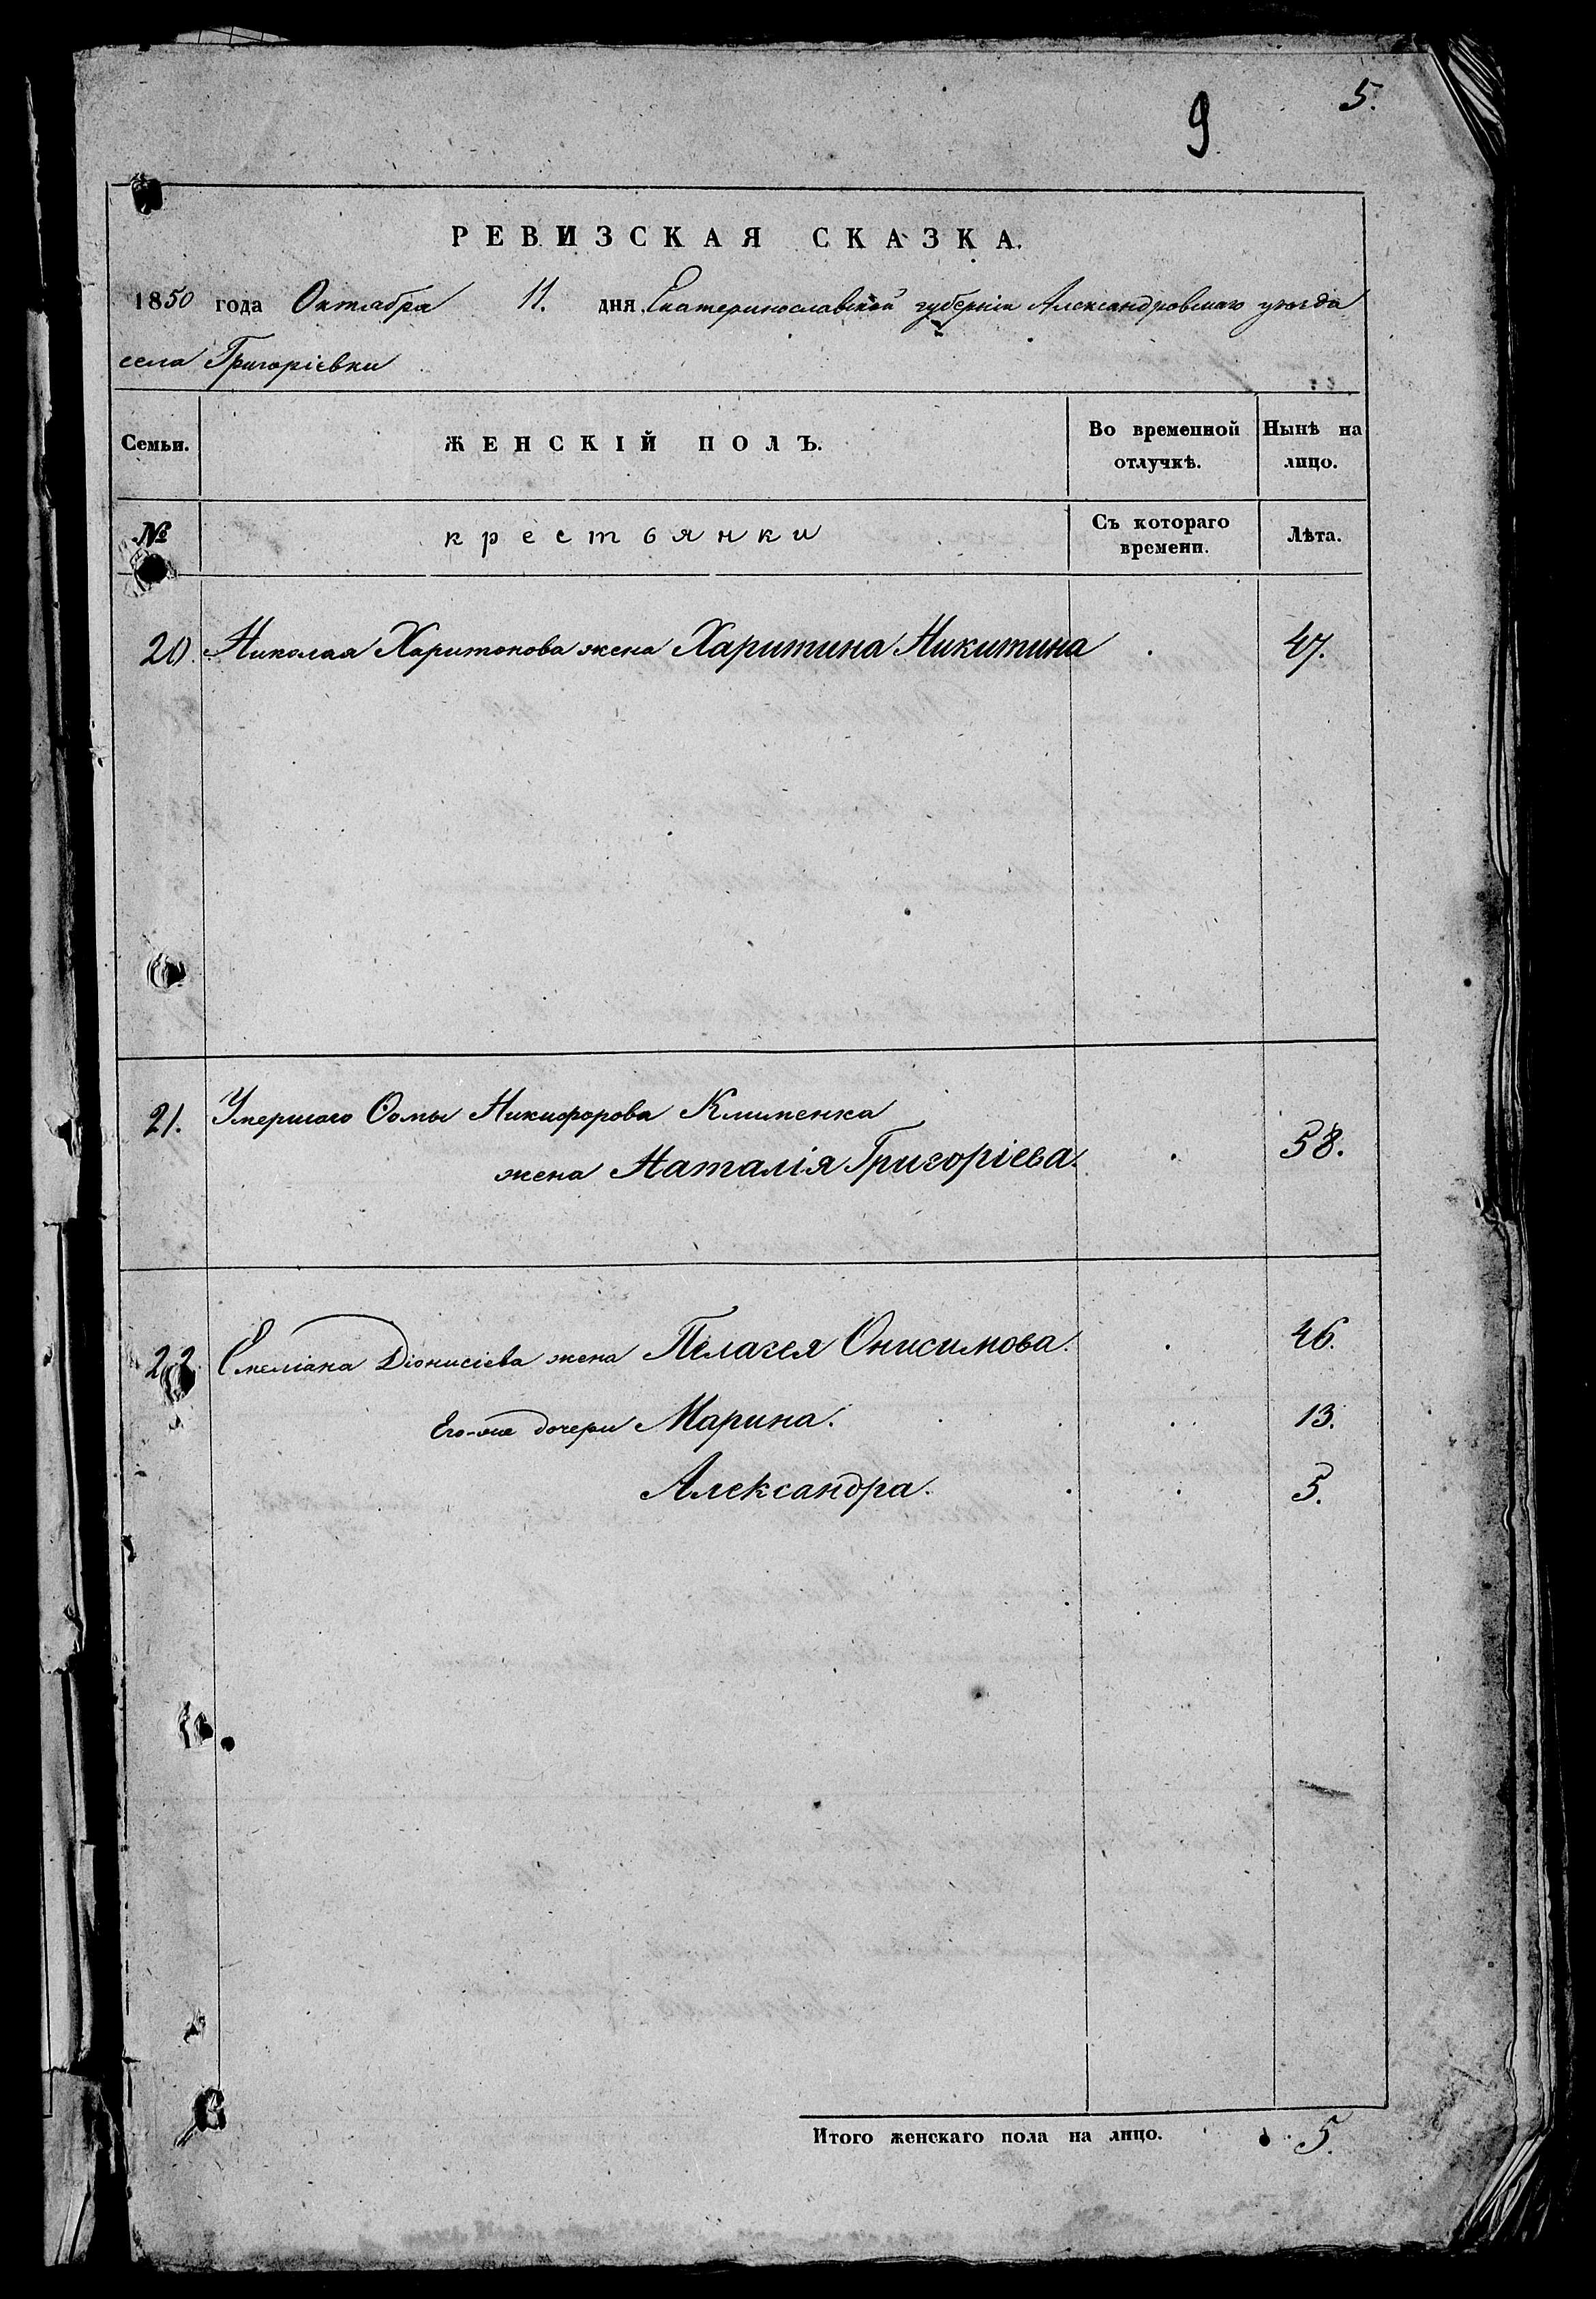 5.
9
РЕВИЗСКАЯ СКАЗКА.
1850 года Октября 11. дня Екатеринославской губерніи Александровскаго уѣзда
села Григоріевки
Семьи. ЖЕНСКІЙ ПОЛЪ. Во временной отлучкѣ. Нынѣ на лицо.
№ крестьянки Съ котораго времени. Лѣта.
20. Николая Харитонова жена Харитина Никитина 47.
21. Умершаго Ѳомы Никифорова Клименка
жена Наталія Григоріева. 58.
22 Емеліана Діонисіева жена Пелагея Онисимова. 46.
Его-же дочери Марина. 13.
Александра. 5.
Итого женскаго пола на лицо. 5.